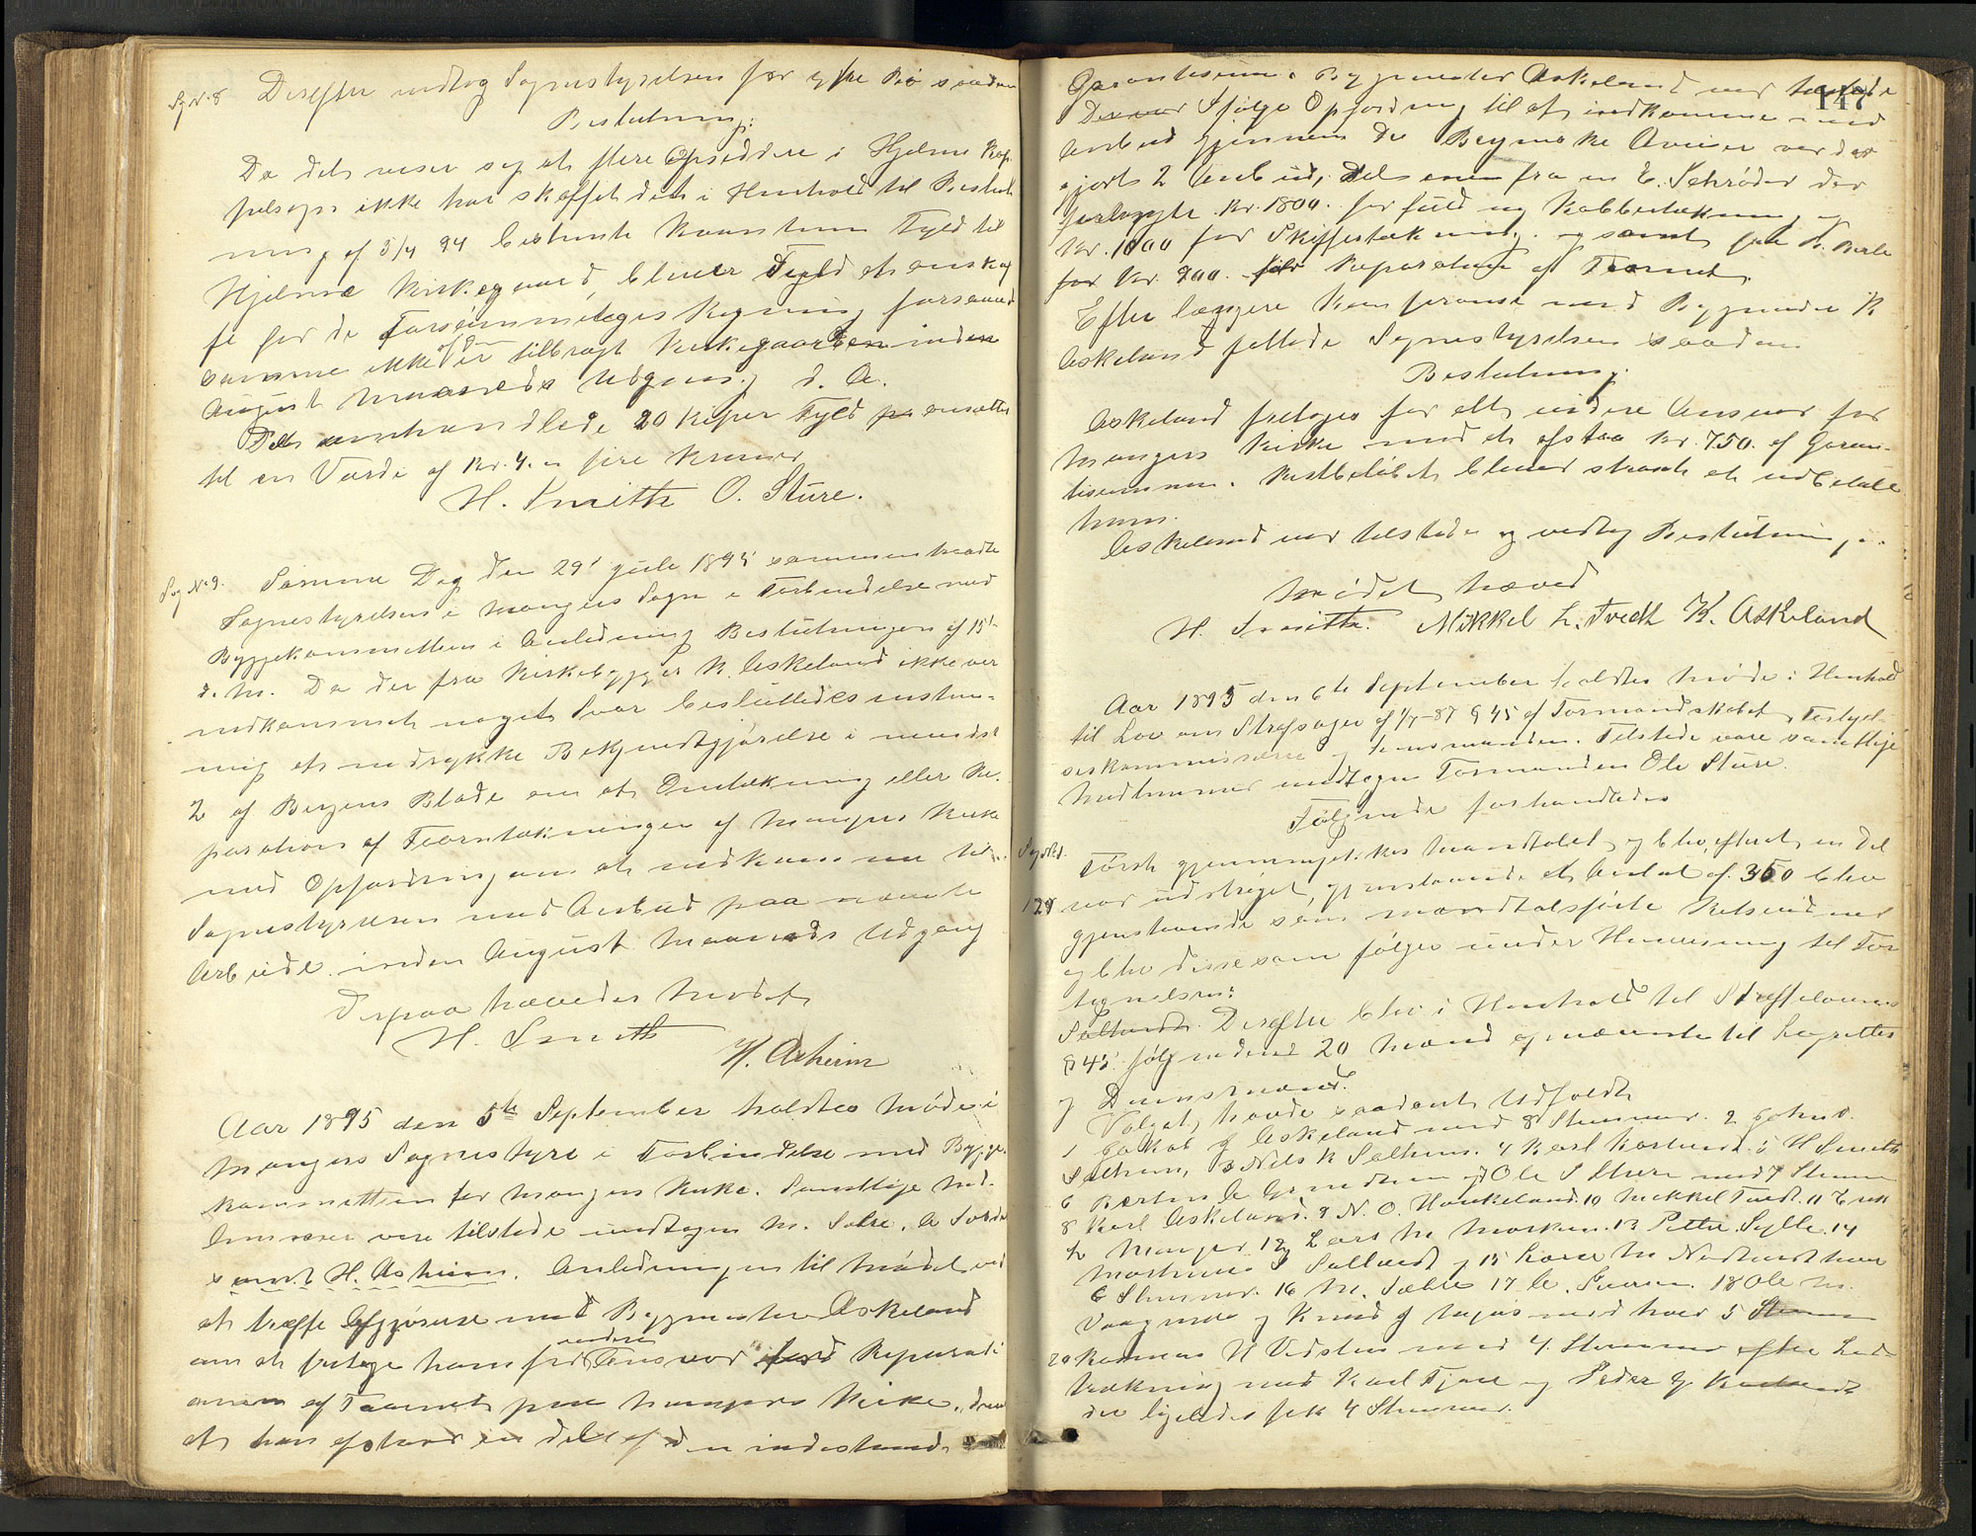 Sag No 8 Derefter vedtog Sognestyrelsen saadan
Beslutning:
Da det viser sig at flere Opsiddere i Hjelme Kap
pelsogn ikke har skaffet det i Henhold til Beslut
ning af 3/4 94 bestemte Kvantum Fyld til
Hjelme Kirkegaard, bliver Fyld at anskaf
fe for de Forsømmeliges Regning forsaavidt
samme ikke af dem er tilbragt Kirkegaarden inden
August Maaneds Udgang d. A.
Det omhandlede 20 Kiper Fyld ansættes
til en Værdi af Kr. 4. fire Kroner
H. Smith O. Sture.
Sag No 9. Samme Dag den 29' Juli 1895 sammentraadte
Sognestyrelsen i Mangers Sogn i Forbindelse med
Byggekommitteen i Anledning Beslutningen af 15'
d. M. Da der fra Kirkebygger K. Askeland ikke var
indkommet noget Svar besluttedes
at indrykke Bekjendtgjørelse i mindst
2 af Bergens Blade om at Omtækning eller Re
paration af Taarntækningen af Mangers Kirke
med Opfordring om at indkomme til
Sognestyrelsen med Anbud paa nævnte
Arbeide inden August Maaneds Udgang
Derpaa hævedes Mødet
H. Smith
H. Askeim
Aar 1895 den 5te September holdtes Møde i
Mangers Sognestyre i Forbindelse med Bygge
kommitteen for Mangers Kirke. Samtlige Med
lemmer vare tilstede undtagen M. Sæbø, A
samt H. Askeim. Anledningen til Mødet var
at træffe Afgjørelse med Bygmester Askeland
om at fritage ham for videre Ansvar Reparati
onen af Taarnet paa Mangers Kirke, imod
at han afstaar en del af den indestaaende
147
Garantisum. Bygmester Askeland var tilstede
Der var Ifølge Opfordring til at indkomme med
Anbud gjennem de Bergenske Aviser var der
gjort 2 Anbud, den ene fra en E. Schrøder der
forlangte Kr. 1800. for fuld ny Kobbertækning og
Kr. 1000 for Skiffertækning, og samt fra
for Kr. 900. for Reparation af Taarnet.
Efter længere Konferanse med Bygmester K
Askeland fattede Sognestyrelsen saadan
Beslutning:
Askeland fritages for alt videre Ansvar for
Mangers Kirke mod at afstaa Kr. 750. af Garan
tisummen. Restbeløbet bliver straks at udbetale
ham.
Askeland var tilstede og vedtog Beslutningen.
Mødet hævet
H. Smith. Mikkel L. Tvedt K. Askeland
Aar 1895 den 6te September holdtes Møde i Henhold
til Lov om Strafsager af 1/7-87 § 45 af Formandskabet, Forligel
seskommissærer og Lensmanden. Tilstede vare samtlige
Medlemmer undtagen Formanden Ole Sture.
Følgende forhandledes
Sag No 1. Først gjennemgikkes Mandtalet, og blev, efterat en Del
var udstrøget, gjenstaaende et Antal af 350 blev
gjenstaaende som mandtalsførte
og blev disse som følger under Henvisning til For
tegnelsen:
Derefter blev i Henhold til Straffelovens
§ 45 følgende 20 Mænd opnævnte til Lagrettes
og Domsmænd.
Valget havde saadant Udfald:
1 Jakob J Askeland med 8 Stemmer. 2
3 Nils K Sætheim. 4 Karl 5 H Smith
6 7 Ole Sture med 7 Stemmer
8 Karl Askeland. 9 N. O. Haukeland. 10 Mikkel Tvedt. 11 Erik
Manger 12 Lars M Marken. 13 Petter Sylte. 14
og 15
6 Stemmer. 16 M. Sæbø 17 18 Ole M.
og Knud J med hver 5 Stemmer
20 Rasmus H med 4 Stemmer efter Lod
trækning med Karl og Peder
der ligeledes fik 4 Stemmer.